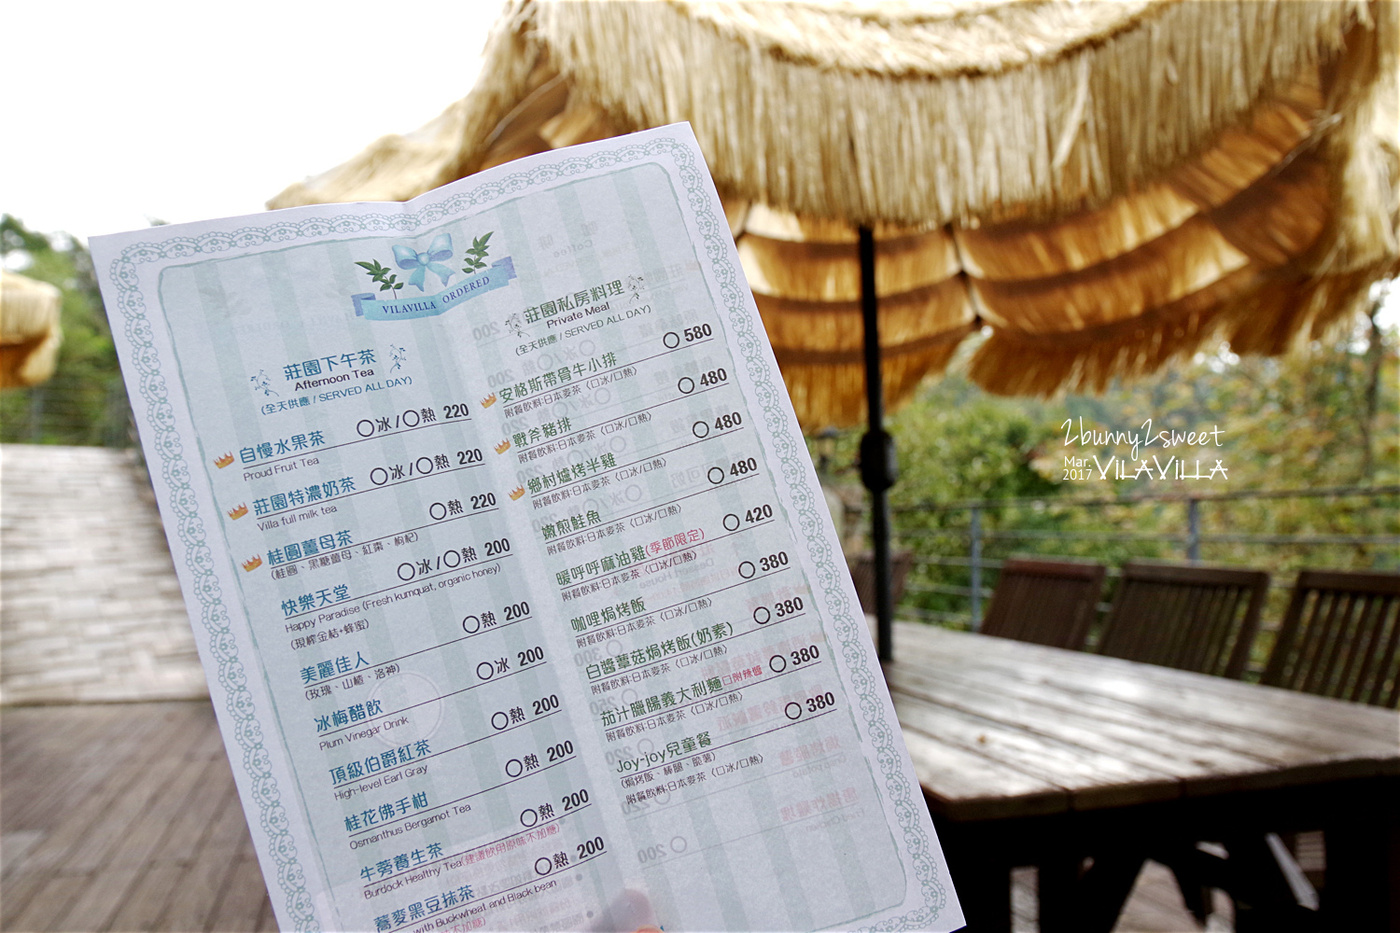 VILAVILLA ORDERED
莊園下午茶
Afternoon Tea
(全天供應 / SERVED ALL DAY)
自慢水果茶 ○冰/○熱 220
Proud Fruit Tea
莊園特濃奶茶 ○冰/○熱 220
Villa full milk tea
桂圓薑母茶 ○熱 220
(桂圓、黑糖薑母、紅棗、枸杞)
快樂天堂 ○冰/○熱 200
Happy Paradise (Fresh kumquat, organic honey)
(現榨金桔+蜂蜜)
美麗佳人 ○熱 200
(玫瑰、山楂、洛神)
冰梅醋飲 ○冰 200
Plum Vinegar Drink
頂級伯爵紅茶 ○熱 200
High-level Earl Gray
桂花佛手柑 ○熱 200
Osmanthus Bergamot Tea
牛蒡養生茶 ○熱 200
Burdock Healthy Tea(建議飲用原味不加糖)
蕎麥黑豆抹茶 ○熱 200
with Buckwheat and Black bean
不加糖)
莊園私房料理
Private Meal
(全天供應 / SERVED ALL DAY)
安格斯帶骨牛小排 ○ 580
附餐飲料:日本麥茶〈口冰/口熱〉
戰斧豬排 ○ 480
附餐飲料:日本麥茶〈口冰/口熱〉
鄉村爐烤半雞 ○ 480
附餐飲料:日本麥茶〈口冰/口熱〉
嫩煎鮭魚 ○ 480
附餐飲料:日本麥茶〈口冰/口熱〉
暖呼呼麻油雞(季節限定) ○ 420
附餐飲料:日本麥茶〈口冰/口熱〉
咖哩焗烤飯 ○ 380
附餐飲料:日本麥茶〈口冰/口熱〉
白醬蕈菇焗烤飯(奶素) ○ 380
附餐飲料:日本麥茶〈口冰/口熱〉
茄汁臘腸義大利麵 口附辣醬 ○ 380
附餐飲料:日本麥茶〈口冰/口熱〉
Joy-joy兒童餐 ○ 380
(焗烤飯、棒腿、脆薯)
附餐飲料:日本麥茶〈口冰/口熱〉
2bunny2sweet
Mar. 2017 VILAVILLA